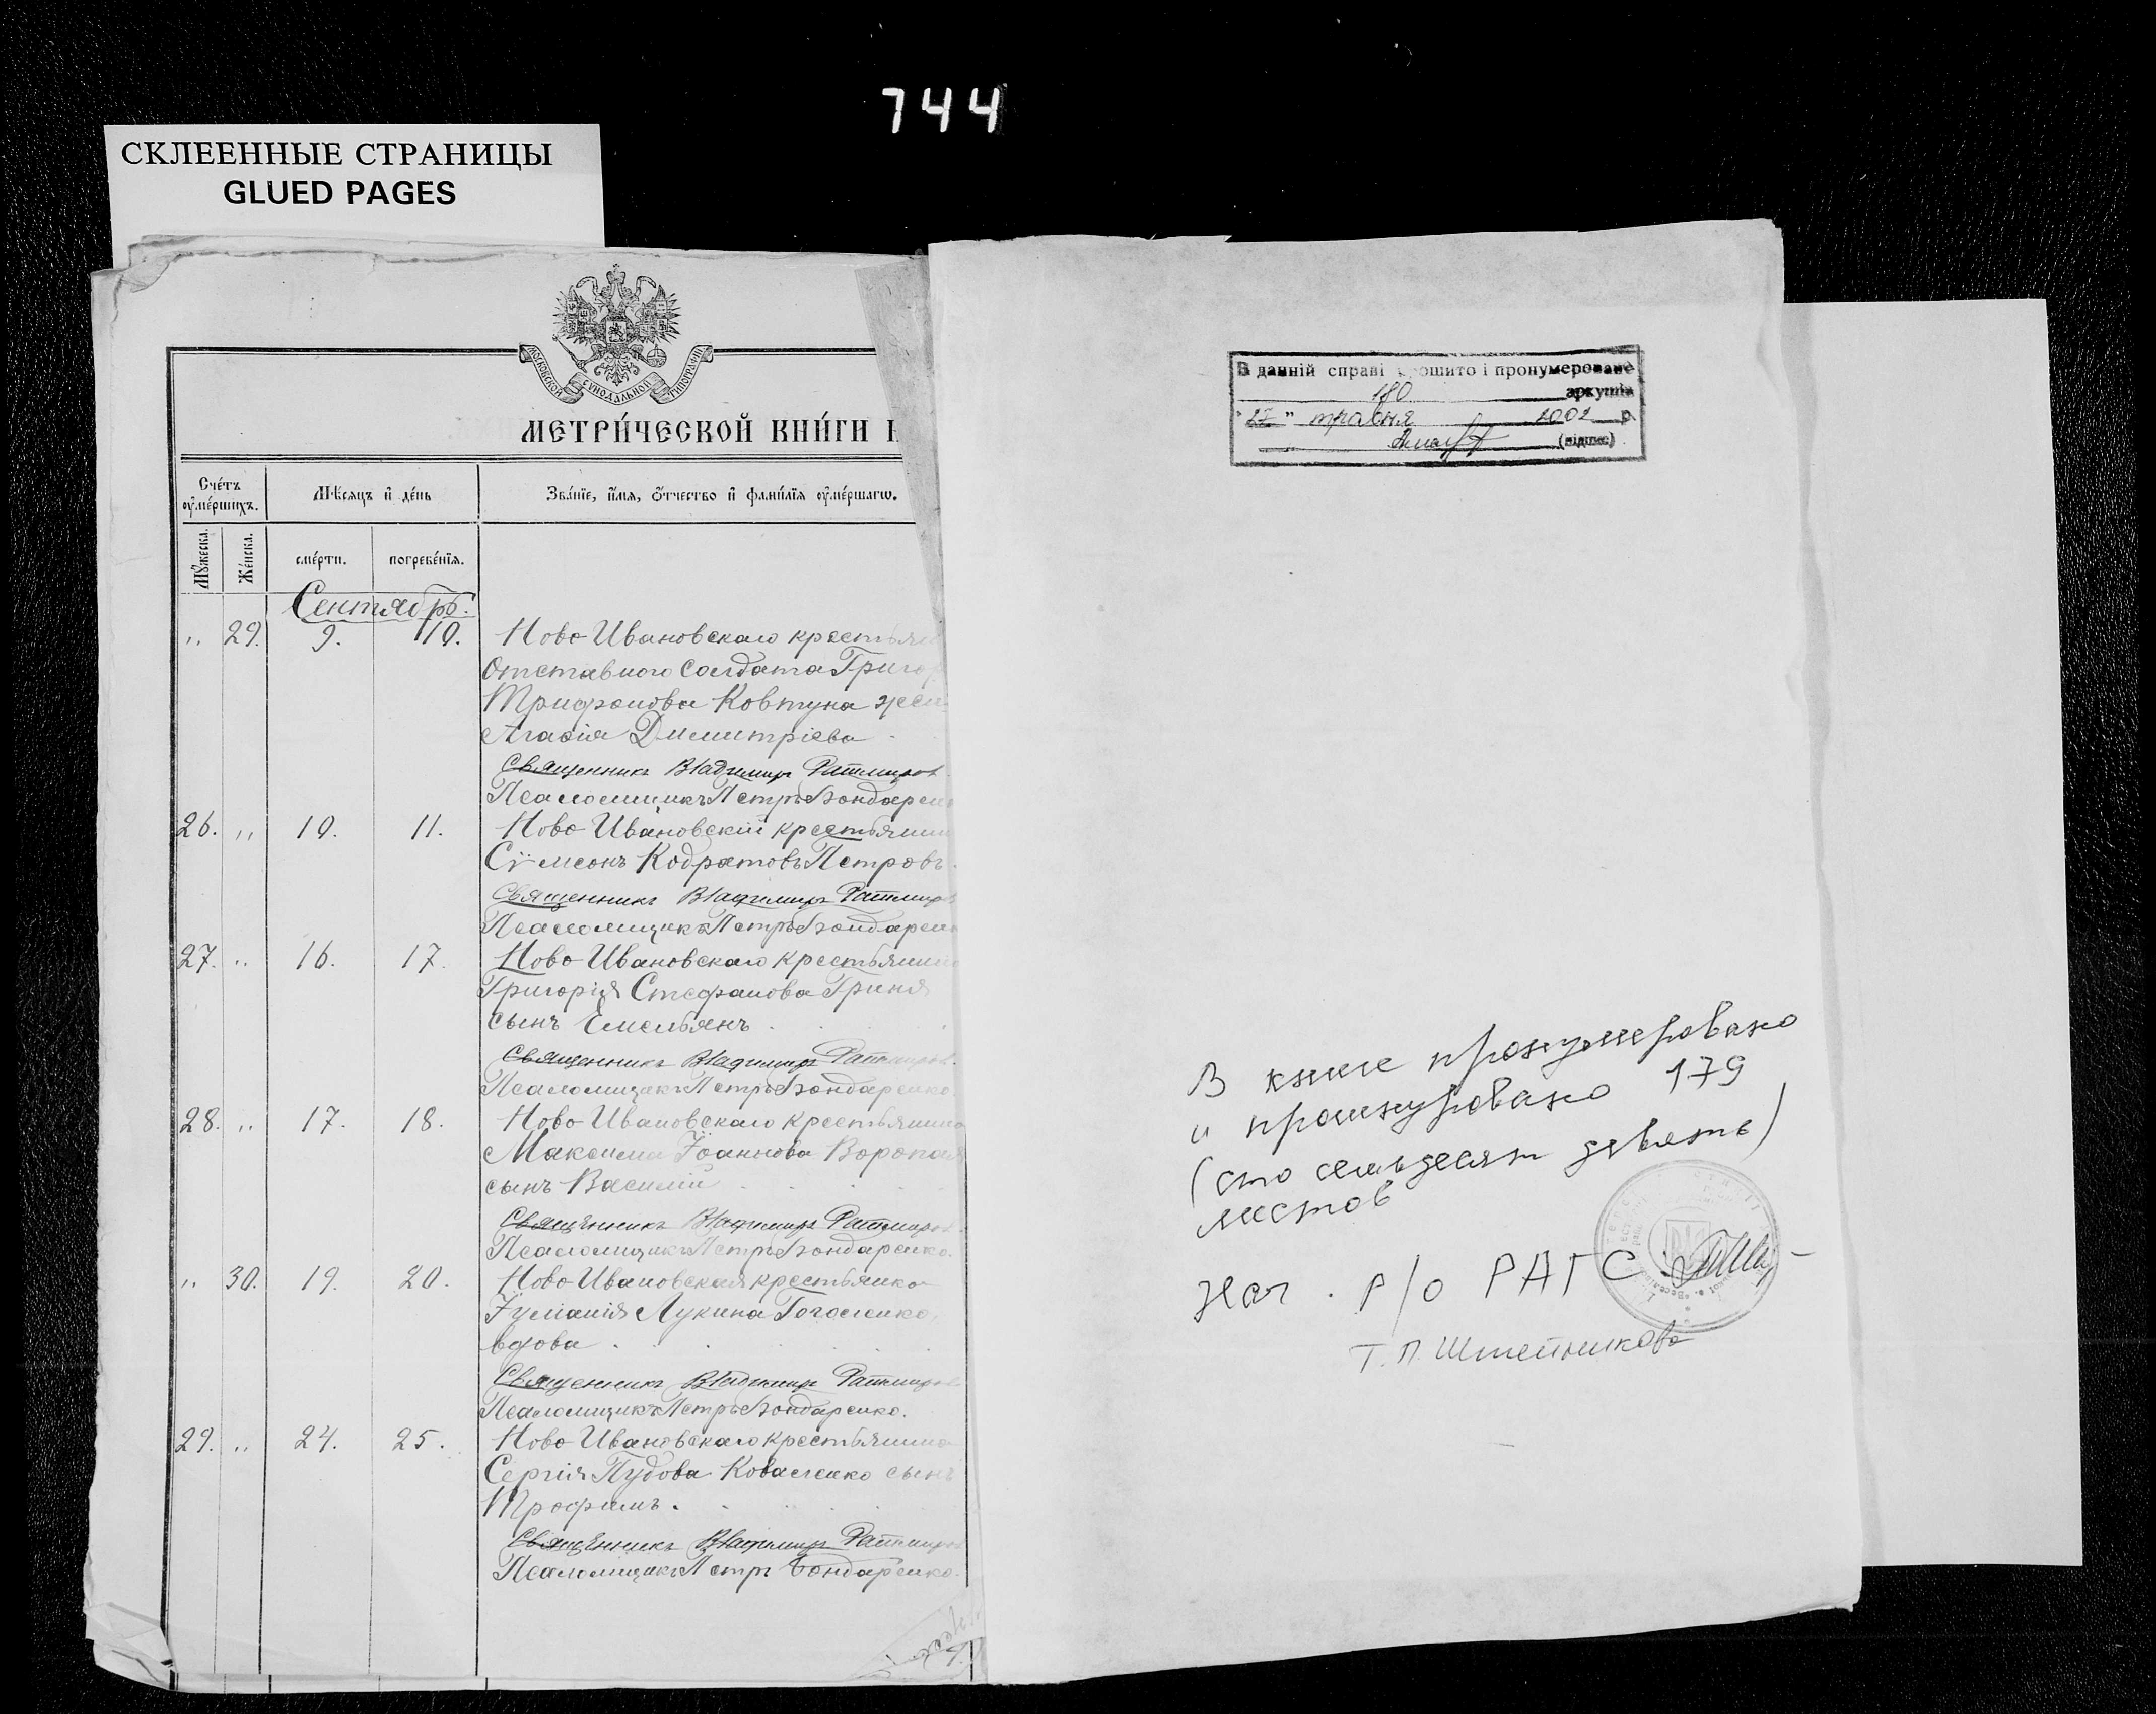 744
СКЛЕЕННЫЕ СТРАНИЦЫ
GLUED PAGES
МОСКОВСКОЙ СѴНОДАЛЬНОЙ ТИПОГРАФІИ
МЕТРИ́ЧЕСКОЙ КНИ́ГИ
Сче́тъ ᲂу҆ме́ршихъ.
Мѣ́сяцъ и҆ де́нь
Зва́нїе, и҆́мя, ѻ҆́тчество и҆ фами́лїя ᲂу҆ме́ршагѡ.
Мꙋ́жеска.
Же́нска.
сме́рти.
погребе́нїя.
Сентябрь.
" 29. 9. 10. Ново-Ивановскаго крестьян
Отставного солдата Григор
Трифонова Ковтуна жен
Агафія Димитріева
Священникъ Владимиръ Ратмиров
Псаломщикъ Петръ Бондарен
26. " 10. 11. Ново-Ивановскій крестьянин
Сѵмеонъ Кодратовъ Петровъ.
Священникъ Владимиръ Ратмиров
Псаломщикъ Петръ Бондарен
27. " 16. 17. Ново-Ивановскаго крестьянина
Григорія Стефанова Гриня
сынъ Емельянъ.
Священникъ Владимиръ Ратмиров.
Псаломщикъ Петръ Бондаренко
28. " 17. 18. Ново-Ивановскаго крестьянина
Максима Іоаннова Воропая
сынъ Василій
Священникъ Владимиръ Ратмиров.
Псаломщикъ Петръ Бондаренко.
" 30. 19. 20. Ново-Ивановская крестьянка
Іуліанія Лукина Гоголенко,
вдова.
Священникъ Владимиръ Ратмиров
Псаломщикъ Петръ Бондаренко.
29. " 24. 25. Ново-Ивановскаго крестьянина
Сергія Пудова Коваленко сынъ
Трофимъ.
Священникъ Владимиръ Ратмиров
Псаломщикъ Петръ Бондаренко.
В данній справі прошито і пронумеровано
180 аркушів
"27" травня 2002 р.
(підпис)
В книге пронумеровано
и прошнуровано 179
(сто семьдесят девять)
листов
Нач. р/о РАГС
Т.П. Штейникова